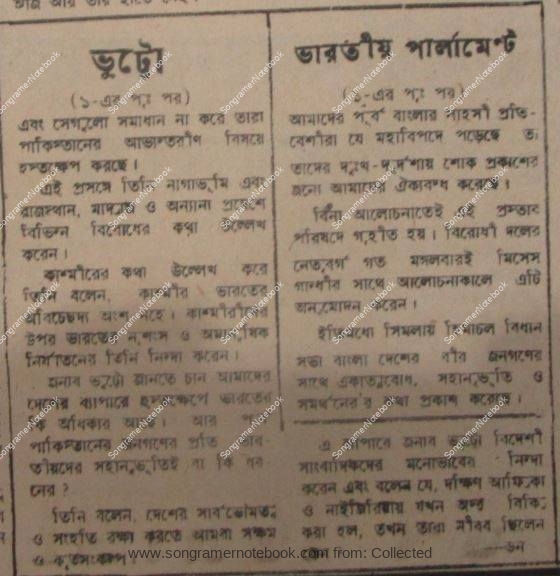 ভুট্টো
(১-এর পৃঃ পর)
এবং সেগুলো সমাধান না করে তারা
পাকিস্তানের আভ্যন্তরীণ বিষয়ে
হস্তক্ষেপ করছে।
এই প্রসঙ্গে তিনি নাগাভূমি এবং
রাজস্থান, মাদ্রাজ ও অন্যান্য প্রদেশে
বিভিন্ন বিরোধের কথা উল্লেখ
করেন।
কাশ্মীরের কথা উল্লেখ করে
তিনি বলেন, কাশ্মীর ভারতের
অবিচ্ছেদ্য অংশ নহে। কাশ্মীরীদের
উপর ভারতের নৃশংস ও অমানুষিক
নির্যাতনের তিনি নিন্দা করেন।
জনাব ভুট্টো জানতে চান আমাদের
দেশের ব্যাপারে হস্তক্ষেপে ভারতের
কি অধিকার আছে। আর পূর্ব
পাকিস্তানের জনগণের প্রতি ভার
তীয়দের সহানুভূতিই বা কি ধর
নের?
তিনি বলেন, দেশের সার্বভৌমত্ব
ও সংহতি রক্ষা করতে আমরা সক্ষম
ও কৃতসংকল্প।
ভারতীয় পার্লামেন্ট
(১-এর পৃঃ পর)
আমাদের পূর্ব বাংলার সাহসী প্রতি-
বেশীরা যে মহাবিপদে পড়েছে তা
তাদের দুঃখ-দুর্দশায় শোক প্রকাশের
জন্যে আমাদের ঐক্যবদ্ধ করেছে।
বিনা আলোচনাতেই এই প্রস্তাব
পরিষদে গৃহীত হয়। বিরোধী দলের
নেতৃবর্গ গত মঙ্গলবারই মিসেস
গান্ধীর সাথে আলোচনাকালে এটি
অনুমোদন করেন।
ইতিমধ্যে সিমলায় হিমাচল বিধান
সভা বাংলা দেশের বীর জনগণের
সাথে একাত্মবোধ, সহানুভূতি ও
সমর্থনের কথা প্রকাশ করেছে।
এ ব্যাপারে জনাব ভুট্টো বিদেশী
সাংবাদিকদের মনোভাবের নিন্দা
করেন এবং বলেন যে, দক্ষিণ আফ্রিকা
ও নাইজিরিয়ায় যখন অস্ত্র বিক্রি
করা হল, তখন তারা নীরব ছিলেন
কেন
www.songramernotebook.com from: Collected
SongramerNotebook